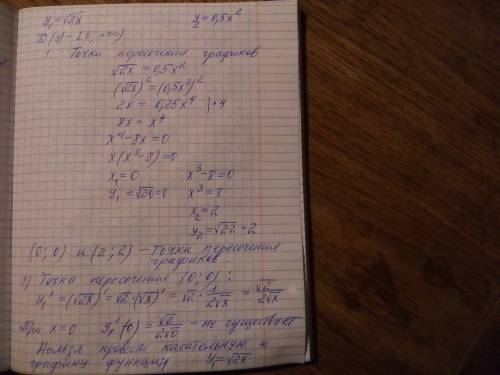 y₁=√2x y₂=0,5x²
D(y)=[0;+∞)
1. Точки пересечения графиков
√2x = 0,5x²
(√2x)²=(0,5x²)²
2x = 0,25x⁴ } · 4
8x = x⁴
x⁴-8x=0
x(x³-8)=0
x₁=0 x³-8=0
y₁=√2·0=0 x³=8
x₂=2
y₂=√2·2=2
(0;0) и (2;2) - Точки пересечения
графиков
1) Точка пересечения (0;0):
y₁'=(√2x)'=√2·(√x)'=√2·1/2√x=√2/2√x
При x=0 y₁'(0)=√2/2√0 - не существует
Нельзя провести касательную к
графику функции y₁=√2x